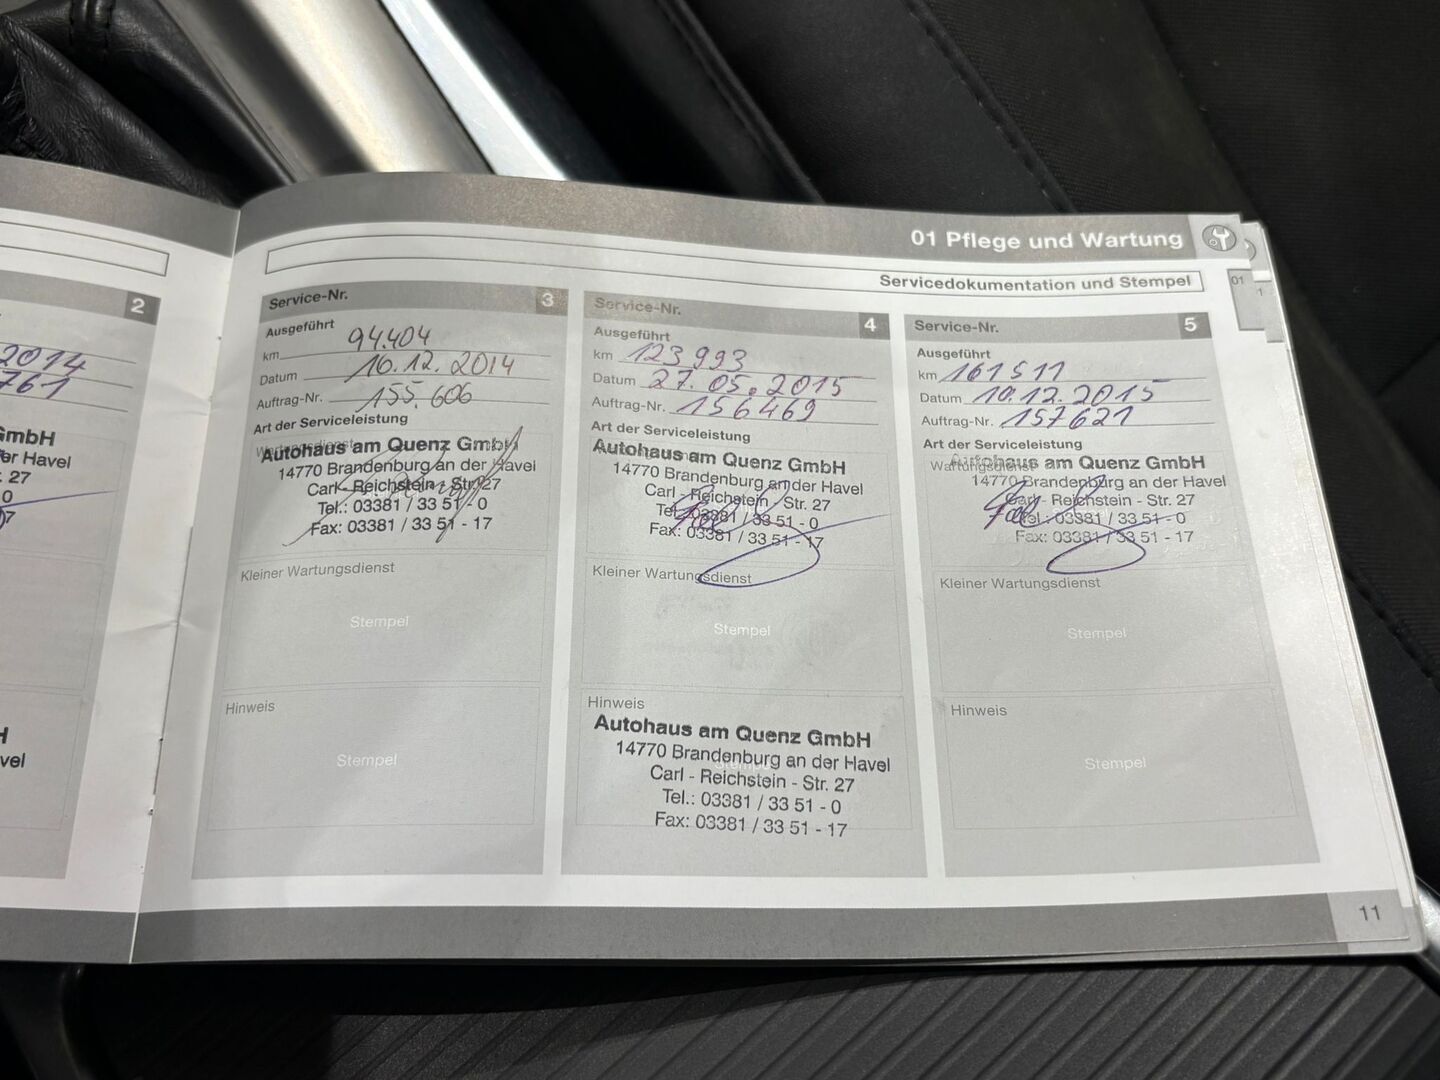 01 Pflege und Wartung
Servicedokumentation und Stempel
01
1
2
2014
761
GmbH
er Havel
. 27
0
7
H
vel
Service-Nr. 3
Ausgeführt
km 94.404
Datum 16.12.2014
Auftrag-Nr. 155.606
Art der Serviceleistung
Wartungsdienst
Autohaus am Quenz GmbH
14770 Brandenburg an der Havel
Carl - Reichstein - Str. 27
Tel.: 03381 / 33 51 - 0
Fax: 03381 / 33 51 - 17
Kleiner Wartungsdienst
Stempel
Hinweis
Stempel
Service-Nr. 4
Ausgeführt
km 123993
Datum 27.05.2015
Auftrag-Nr. 156469
Art der Serviceleistung
Autohaus am Quenz GmbH
14770 Brandenburg an der Havel
Carl - Reichstein - Str. 27
Tel.: 03381 / 33 51 - 0
Fax: 03381 / 33 51 - 17
Kleiner Wartungsdienst
Stempel
Hinweis
Autohaus am Quenz GmbH
14770 Brandenburg an der Havel
Stempel
Carl - Reichstein - Str. 27
Tel.: 03381 / 33 51 - 0
Fax: 03381 / 33 51 - 17
Service-Nr. 5
Ausgeführt
km 161511
Datum 10.12.2015
Auftrag-Nr. 157621
Art der Serviceleistung
Wartungsdienst
Autohaus am Quenz GmbH
14770 Brandenburg an der Havel
Carl - Reichstein - Str. 27
Tel.: 03381 / 33 51 - 0
Fax: 03381 / 33 51 - 17
Kleiner Wartungsdienst
Stempel
Hinweis
Stempel
11